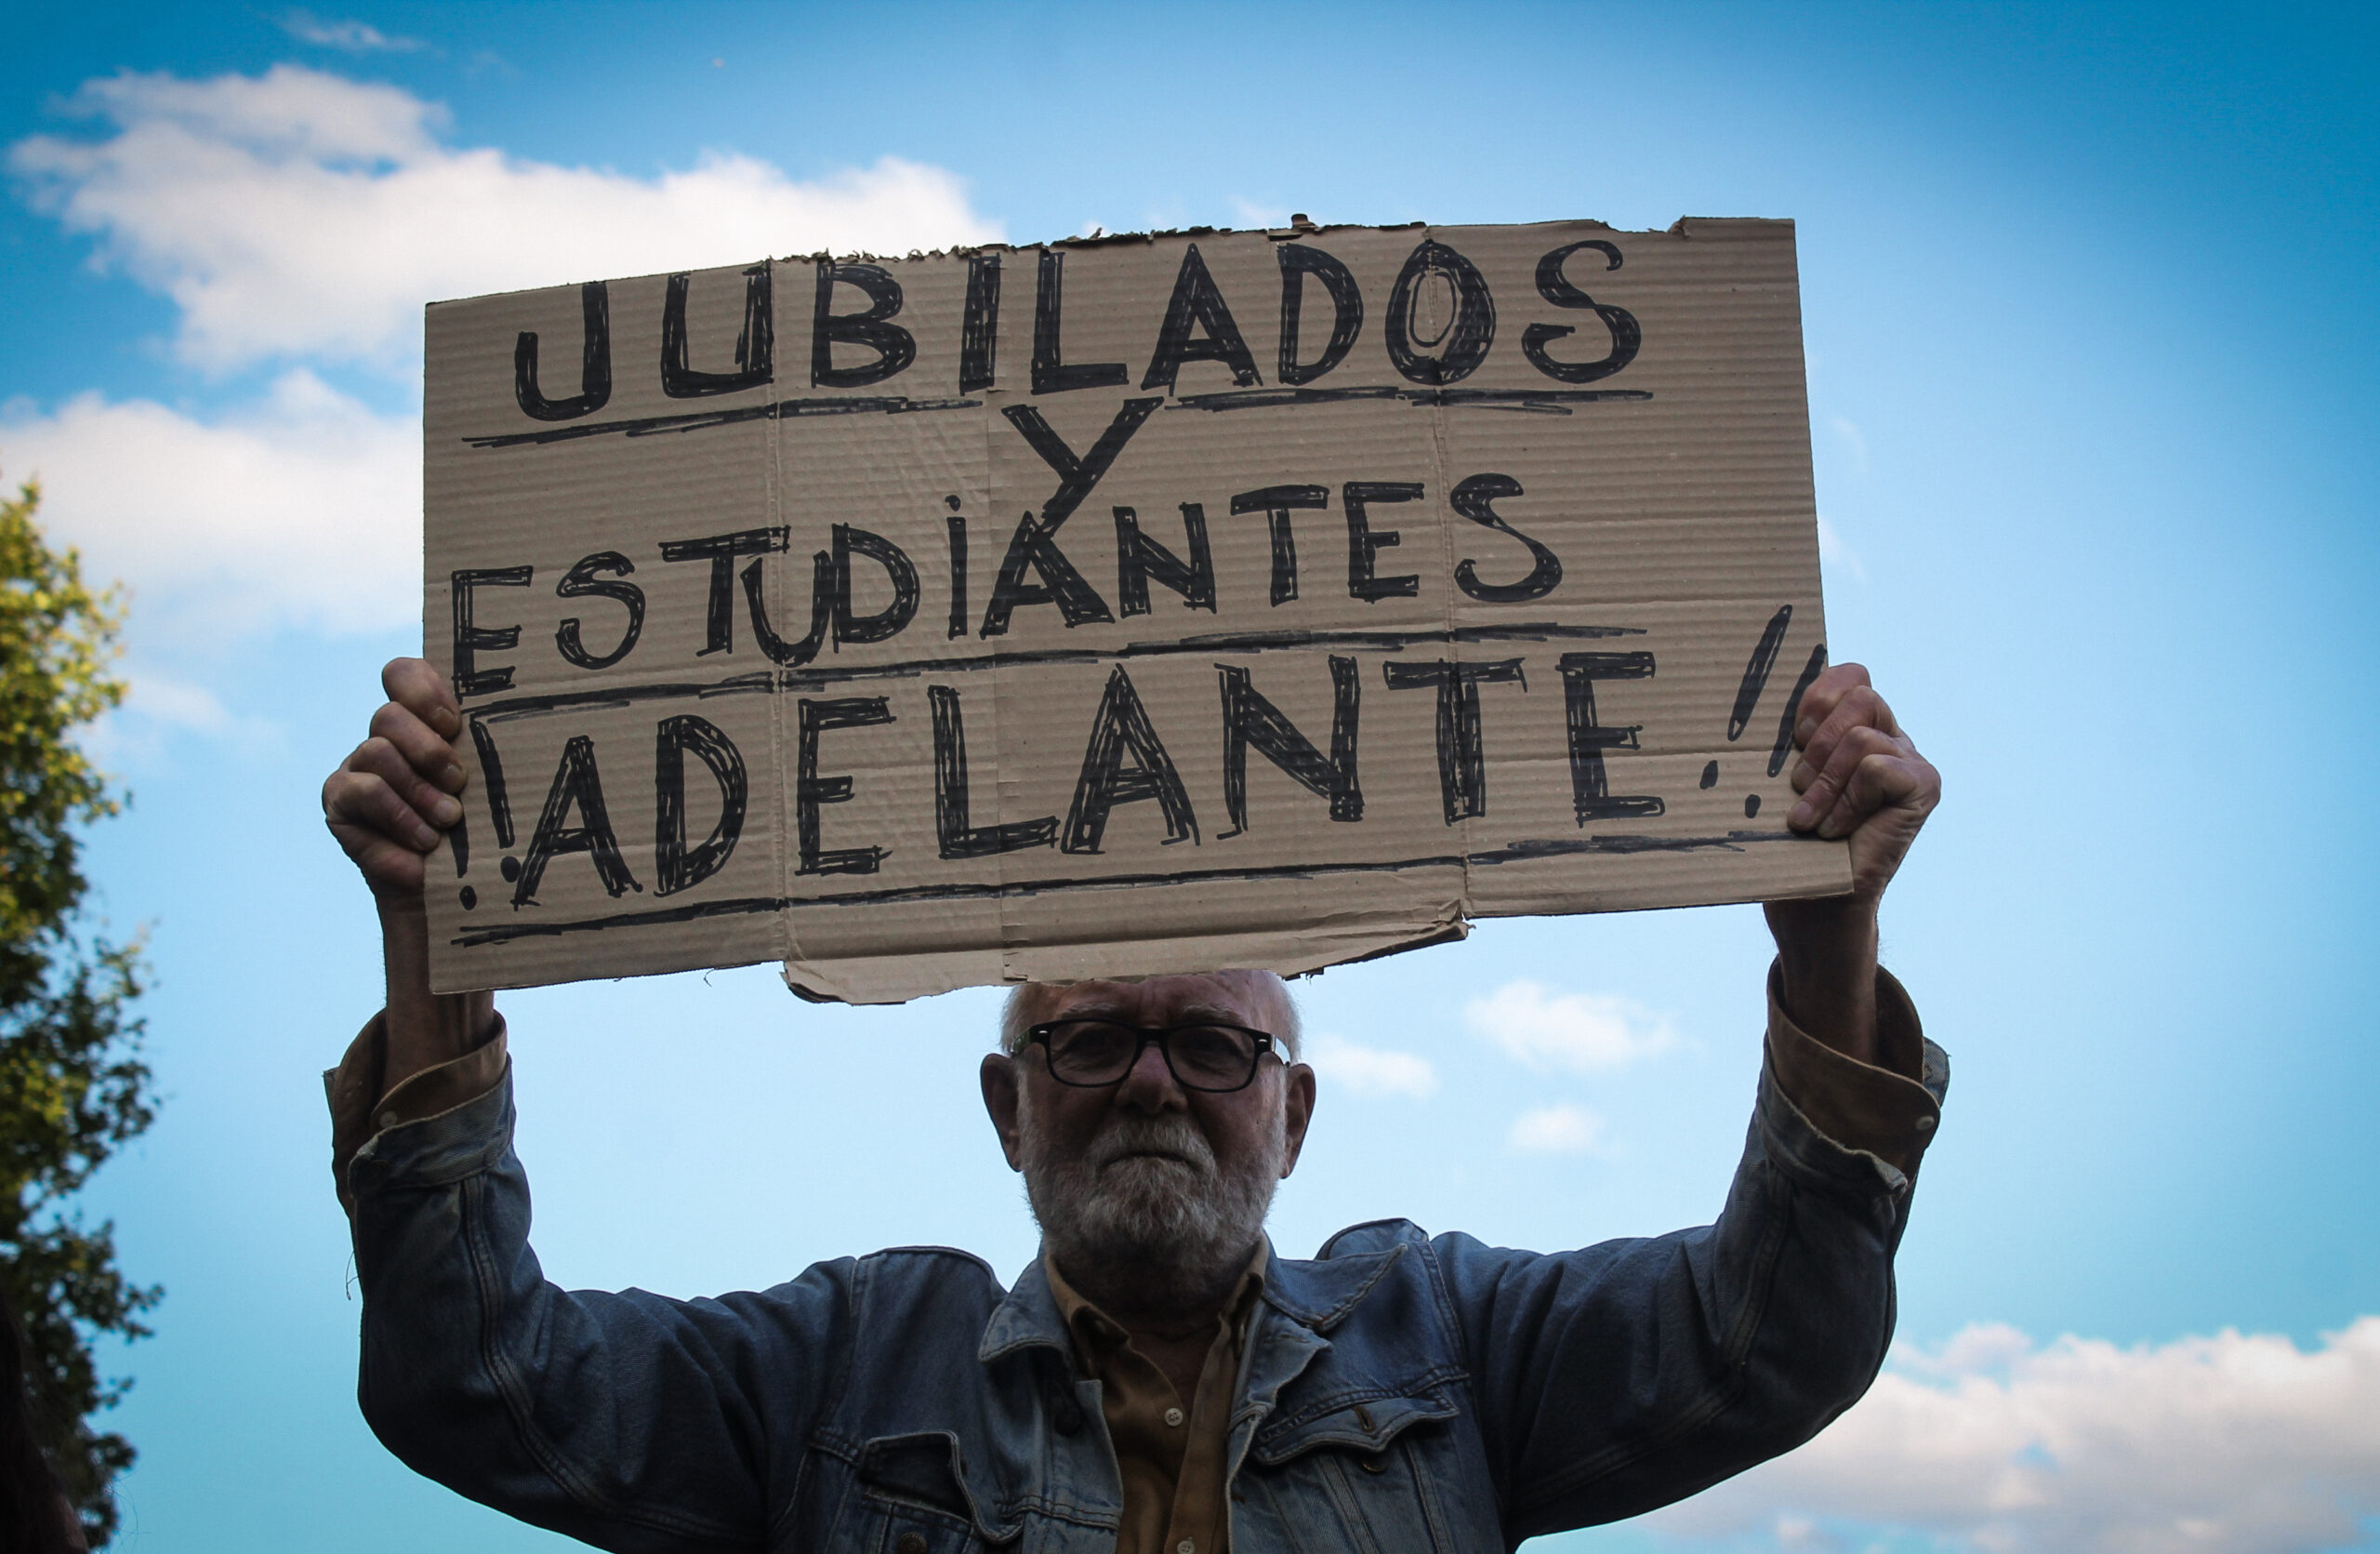 JUBILADOS
Y
ESTUDiANTES
!!ADELANTE!!